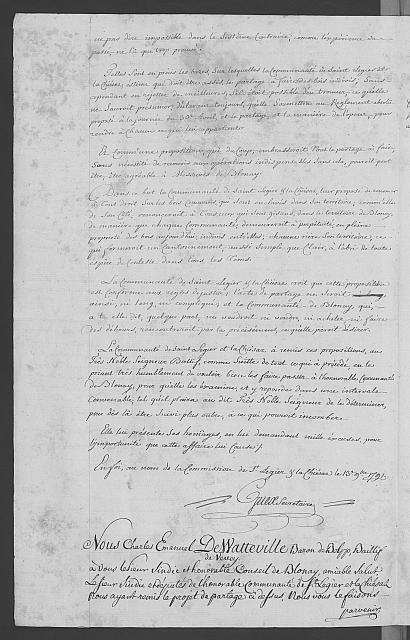 ne pas dire impossible dans le Sistême Contraire, comme l'expérience du
passé ne l'a que trop prouvé.
Telles sont en précis les bases, sur lesquelles la Communauté de Saint Legier et
la Chiésaz, estime que doit être assis, le partage à faire des bois indivis, Sans
cependant en rejetter de meilleures, s'il étoit possible d'en trouver, ce qu'elle
ne sauroit présumer, déclarant toujours, qu'elle Soumettra au Reglement
proposé à la journée du 30e Avril, et le partage, et la maniere de l'operer, pour
rendre à chacun ce qui lui appartient.
Comme une proposition, qui du Coup, embrasseroit Tout le partage à faire,
Sans nécessité de recourir aux opérations indispensables Sans cela, pourroit peut
être, être agréable à Messieurs de Blonay.
Dans ce but la Communauté de Saint Legier & la Chiésaz, leur propose de renoncer
à Tous droit Sur les bois Communs qui Sont enclavés dans Son territoire, comme elle
de Son Côté, renonceroit à Tous ceux qui Sont gisans, dans le territoire de Blonay,
de maniere que chaque Communauté, demeureroit à perpétuité, en pleine
propriété des bois aujourd'hui indivis, chacune riere Son territoire, ce
qui formeroit un Cantonnement, aussi Simple, que Clair, à l'abri de toute
espèce de Conteste dans tous les Tems.
La Communauté de Saint Legier & la Chiésaz croit que cette proposition
est Conforme aux règles, qu'un acte de partage ne Seroit
ainsi, ni long, ni compliqué, et la Communauté de Blonay, qui,
a t'elle dit, quelque part, ne voudroit ni vendre, ni acheter, ni faire
des débours, rencontreroit par là précisément, ce qu'elle paroit désirer.
La Communauté de Saint Legier et la Chiésaz a remis ces propositions, au
Très Noble Seigneur Baillif, comme Suitte de tout ce qui a précédé, en le
priant très humblement de vouloir bien les faire passer à l'honorable Communauté
de Blonay, pour qu'elle les examine, et y réponde dans une intervale
Convenable, tel qu'il plaira au dit Très Noble Seigneur de le déterminer,
pour dès là être Suivi plus outre, à ce qui pourroit incomber.
Elle lui présente Ses homages, en lui demandant mille excuses, pour
l'importunité que cette affaire lui Cause.
En foi, au nom de la Commission de St Legier & la Chiésaz le 15e 9bre 1791.
Secretaire
Nous Charles Emanuel De Watteville Baron de Belpp, Baillif
de Vevey
à vous le Sieur Sindic et honorable Conseil de Blonay, amiable Salut.
Le Sieur Sindic et députés de l'honorable Communauté de St Legier et la Chiésaz
Nous ayant remis le projet de partage ci dessus, Nous vous le faisons
parvenir